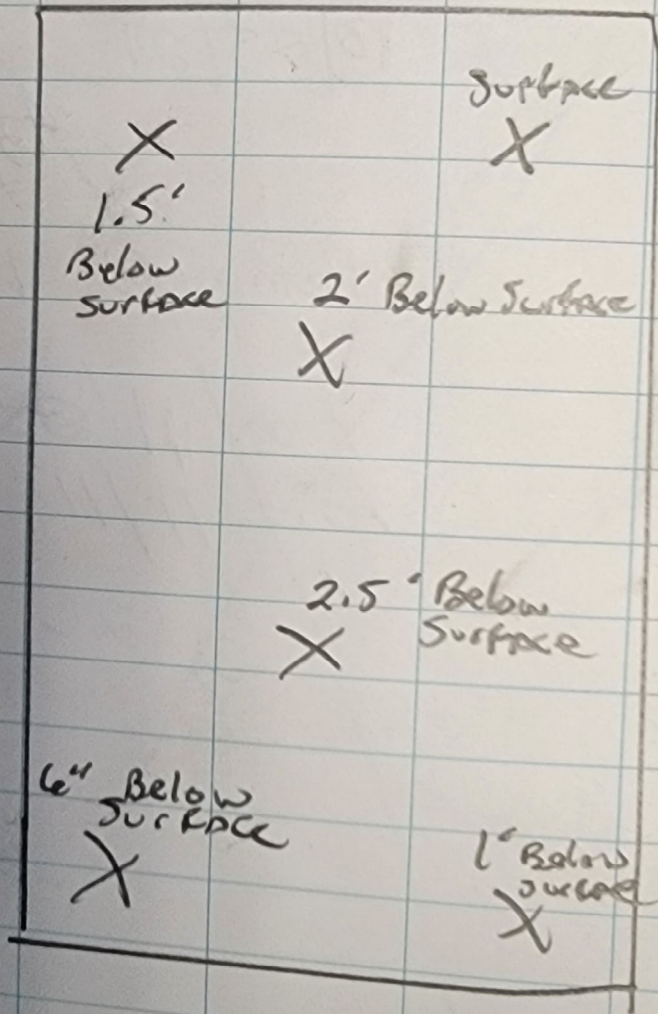 Surface
X
X
1.5'
Below
Surface
2' Below Surface
X
2.5' Below
Surface
X
6" Below
Surface
X
1' Below
Surface
X